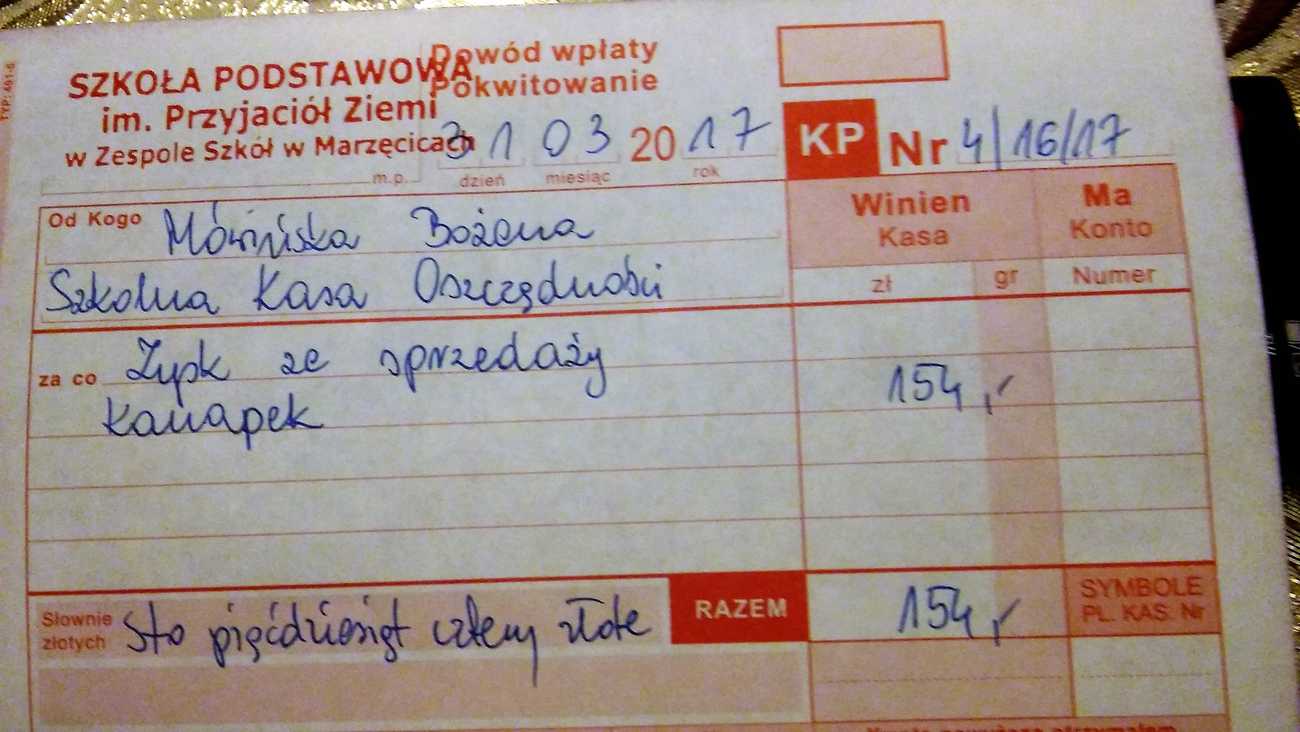 TYP: 401-5
SZKOŁA PODSTAWOWA
im. Przyjaciół Ziemi
w Zespole Szkół w Marzęcicach
m.p.
Dowód wpłaty
Pokwitowanie
31 03 2017
dzień miesiąc rok
KP Nr 4/16/17
Od Kogo Mówińska Bożena
Szkolna Kasa Oszczędności
Winien
Kasa
Ma
Konto
zł gr Numer
za co Zysk ze sprzedaży
kanapek
154,-
Słownie
złotych
Sto pięćdziesiąt cztery złote
RAZEM 154,-
SYMBOLE
PL. KAS. Nr